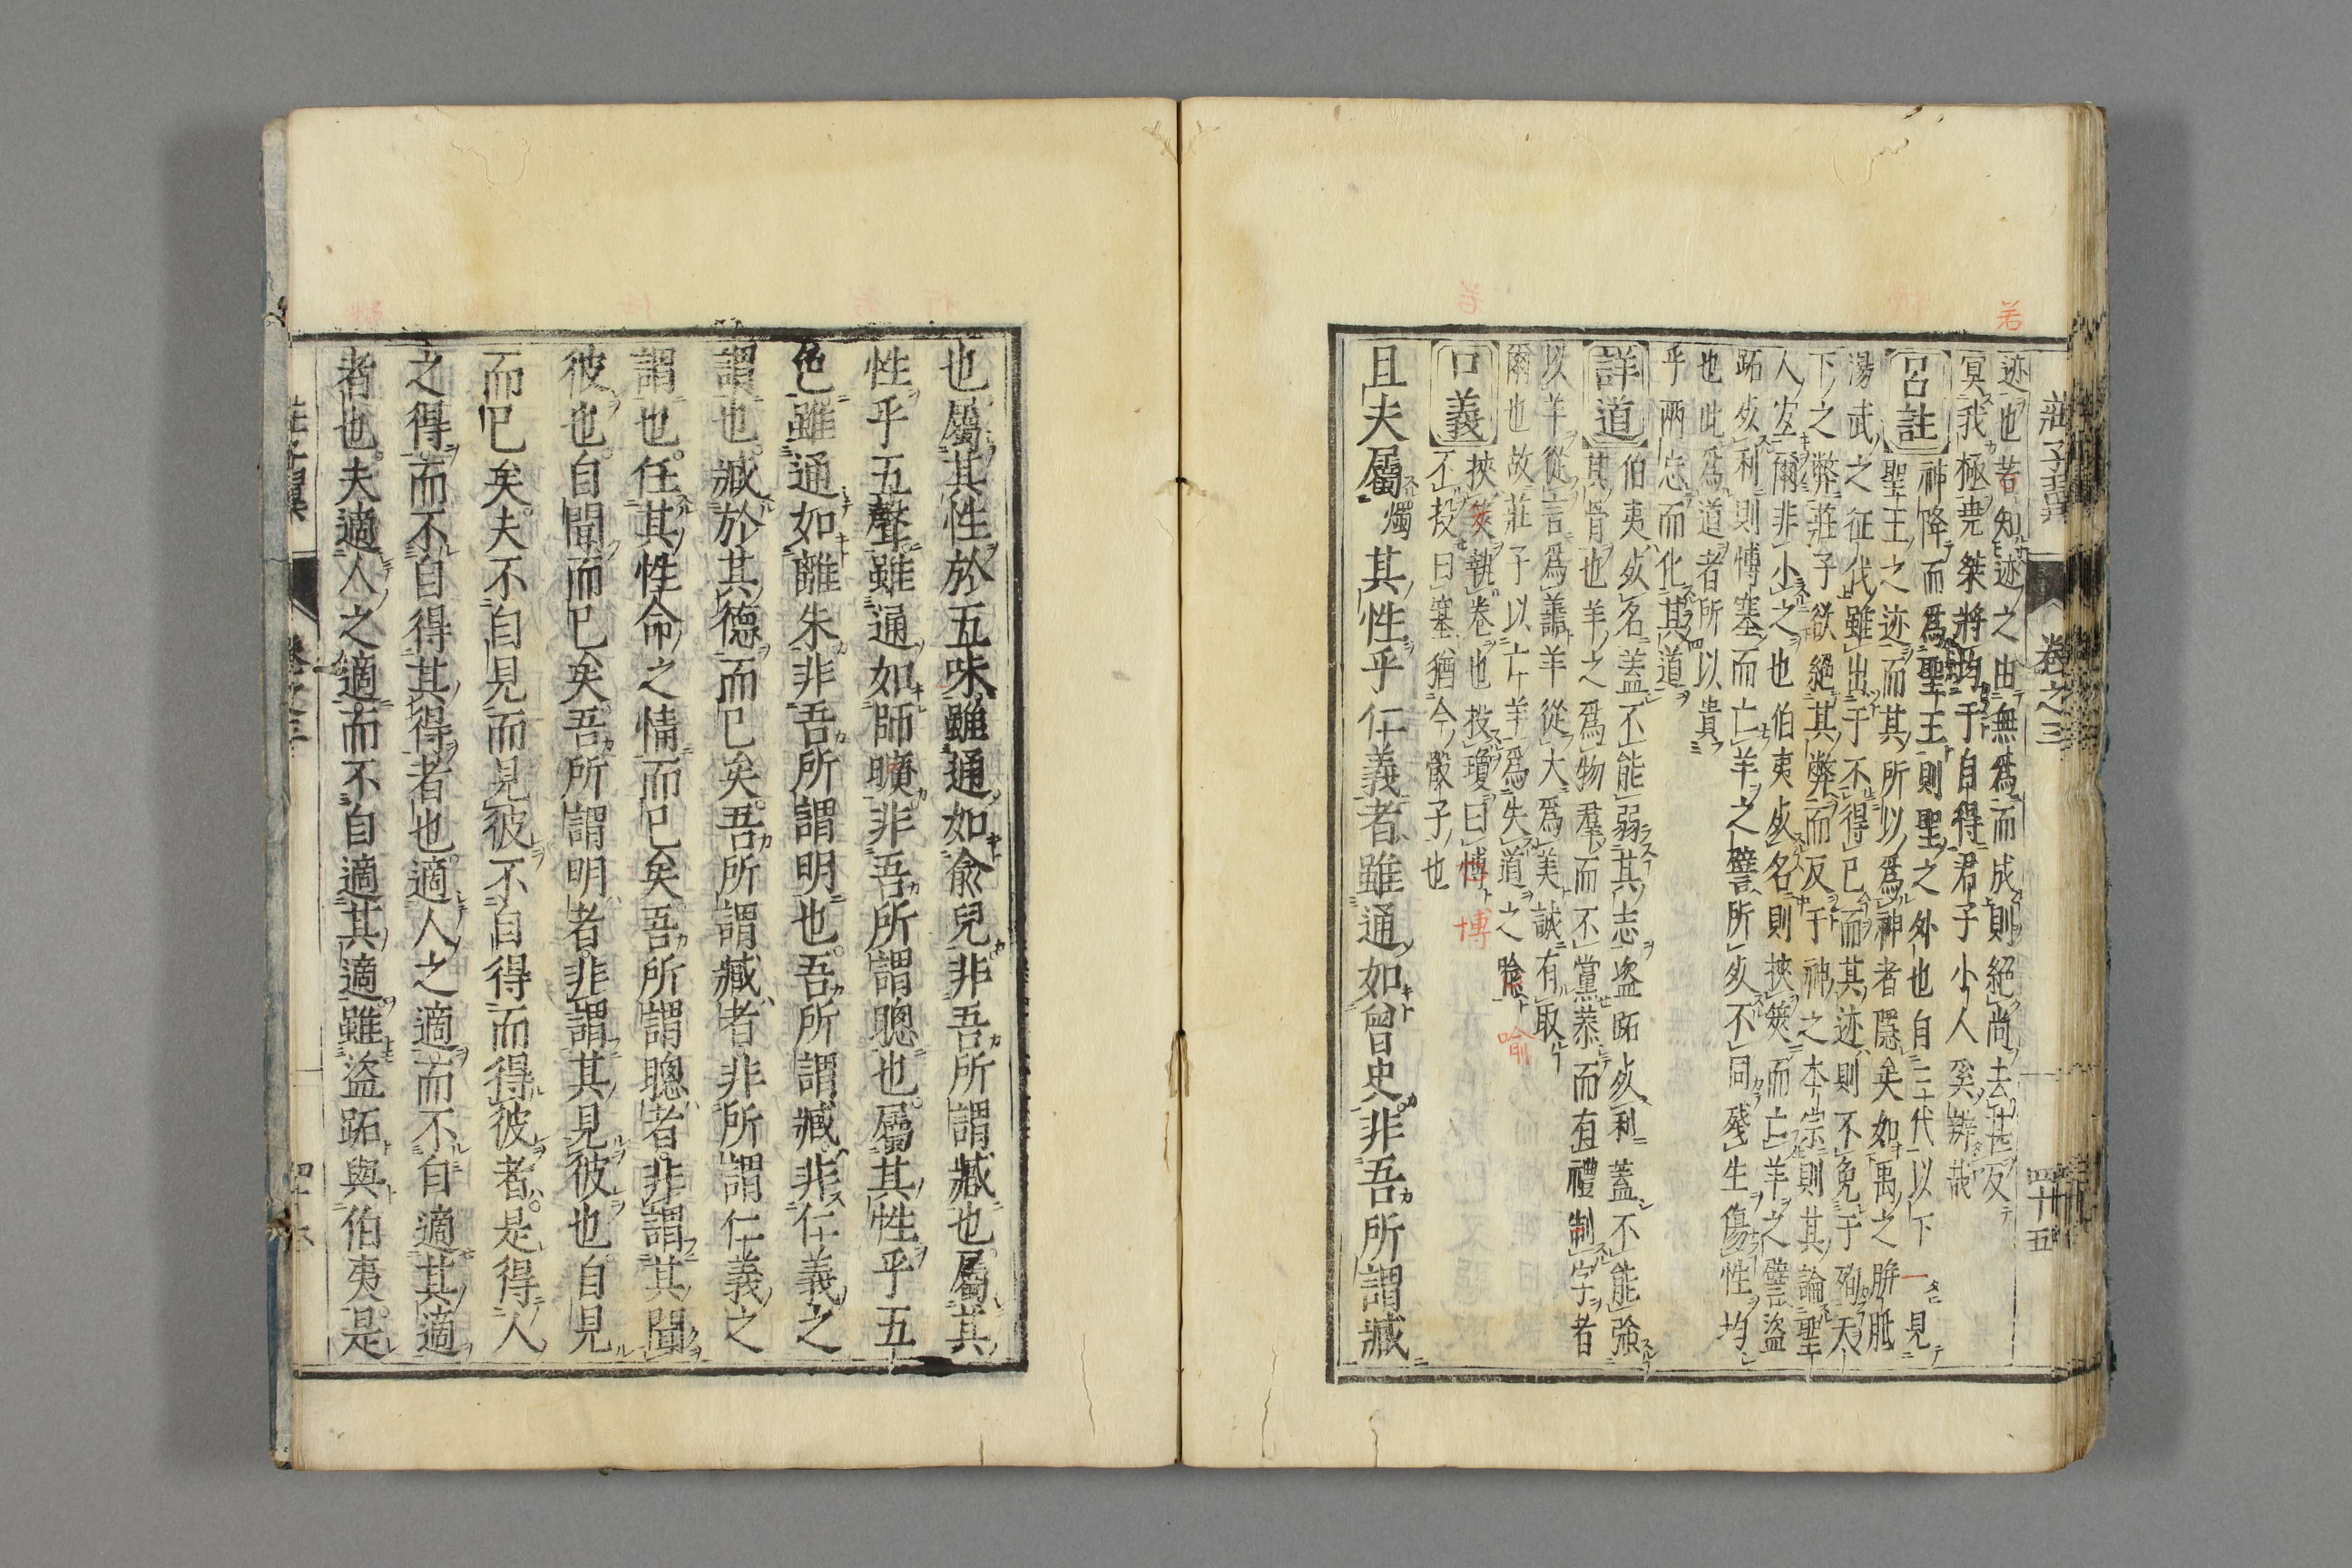 迹也若知迹之由無爲而成則絕尚去甘反
冥我極堯桀將均于自得君子小人奚辨哉
呂註
神降而爲聖王則聖之外也自三代以下見
聖王之迹而其所以爲神者隱矣如禹之胼胝
湯武之征伐雖出于不得已而其迹則不免于殉天
下之弊莊子欲絕其弊而反于神之本宗則其論聖
人宜爾非小之也伯夷死名則挾筴而亡羊之譬盜
跖死利則博塞而亡羊之譬所死不同殘生傷性均
也此爲道者所以貴
乎兩忘而化其道
詳道
伯夷死名蓋不能弱其志盜跖死利蓋不能強
其骨也羊之爲物群而不黨恭而有禮制字者
以羊從言爲善羊從大爲美誠有取
爾也故莊子以亡羊爲失道之喻
口義
挾筴執卷也投瓊曰博
不投曰塞猶今骰子也
且夫屬其性乎仁義者雖通如曾史非吾所謂臧
屬燭
莊子翼 卷之三 四十五
若
博
喻
也屬其性於五味雖通如俞兒非吾所謂臧也屬其
性乎五聲雖通如師曠非吾所謂聰也屬其性乎五
色雖通如離朱非吾所謂明也吾所謂臧非仁義之
謂也臧於其德而已矣吾所謂臧者非所謂仁義之
謂也任其性命之情而已矣吾所謂聰者非謂其聞
彼也自聞而已矣吾所謂明者非謂其見彼也自見
而已矣夫不自見而見彼不自得而得彼者是得人
之得而不自得其得者也適人之適而不自適其適
者也夫適人之適而不自適其適雖盜跖與伯夷是